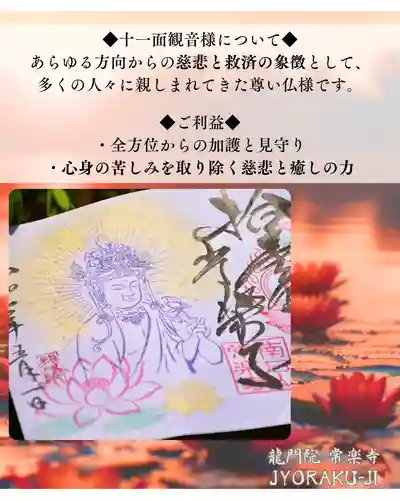 ◆十一面観音様について◆
あらゆる方向からの慈悲と救済の象徴として、
多くの人々に親しまれてきた尊い仏様です。
◆ご利益◆
・全方位からの加護と見守り
・心身の苦しみを取り除く慈悲と癒しの力
龍門院 常楽寺
JYORAKU-JI